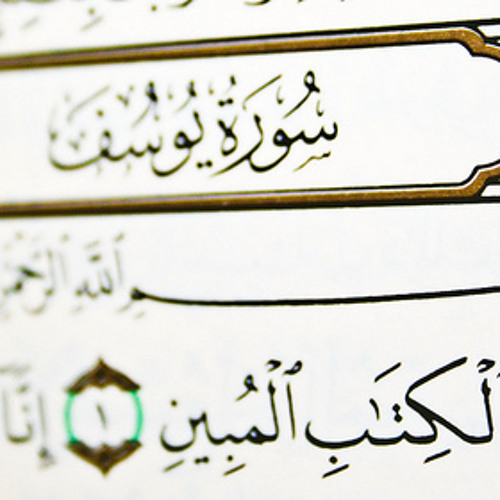 سُورَةُ يُوسُفَ
ٱللَّهِ ٱلرَّحْمَٰ
ٱلْكِتَٰبِ ٱلْمُبِينِ ١ إِنَّا